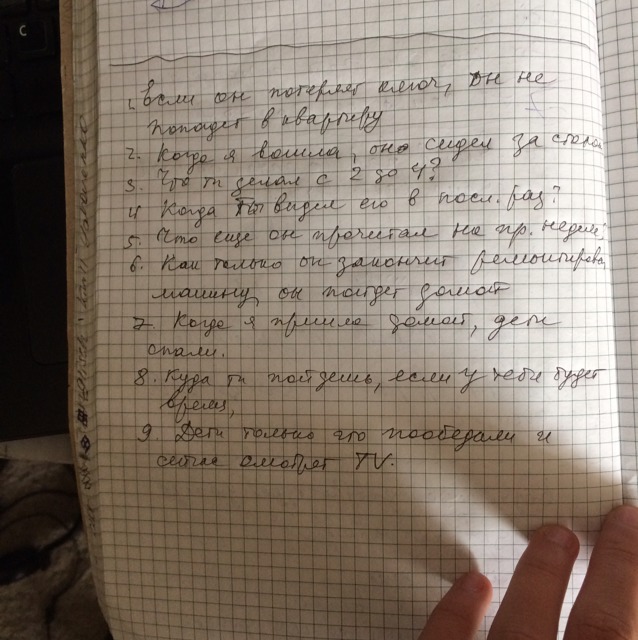 1. Если он потеряет ключ, он не
попадет в квартиру
2. Когда я вошла, он сидел за столом
3. Что ты делал с 2 до 4?
4 Когда ты видел его в посл. раз?
5. Что еще он прочитал на пр. неделе?
6. Как только он закончит ремонтировать
машину, он пойдет домой
7. Когда я пришла домой, дети
спали.
8. Куда ты пойдешь, если у тебя будет
время,
9. Дети только что пообедали и
сейчас смотрят TV.
C